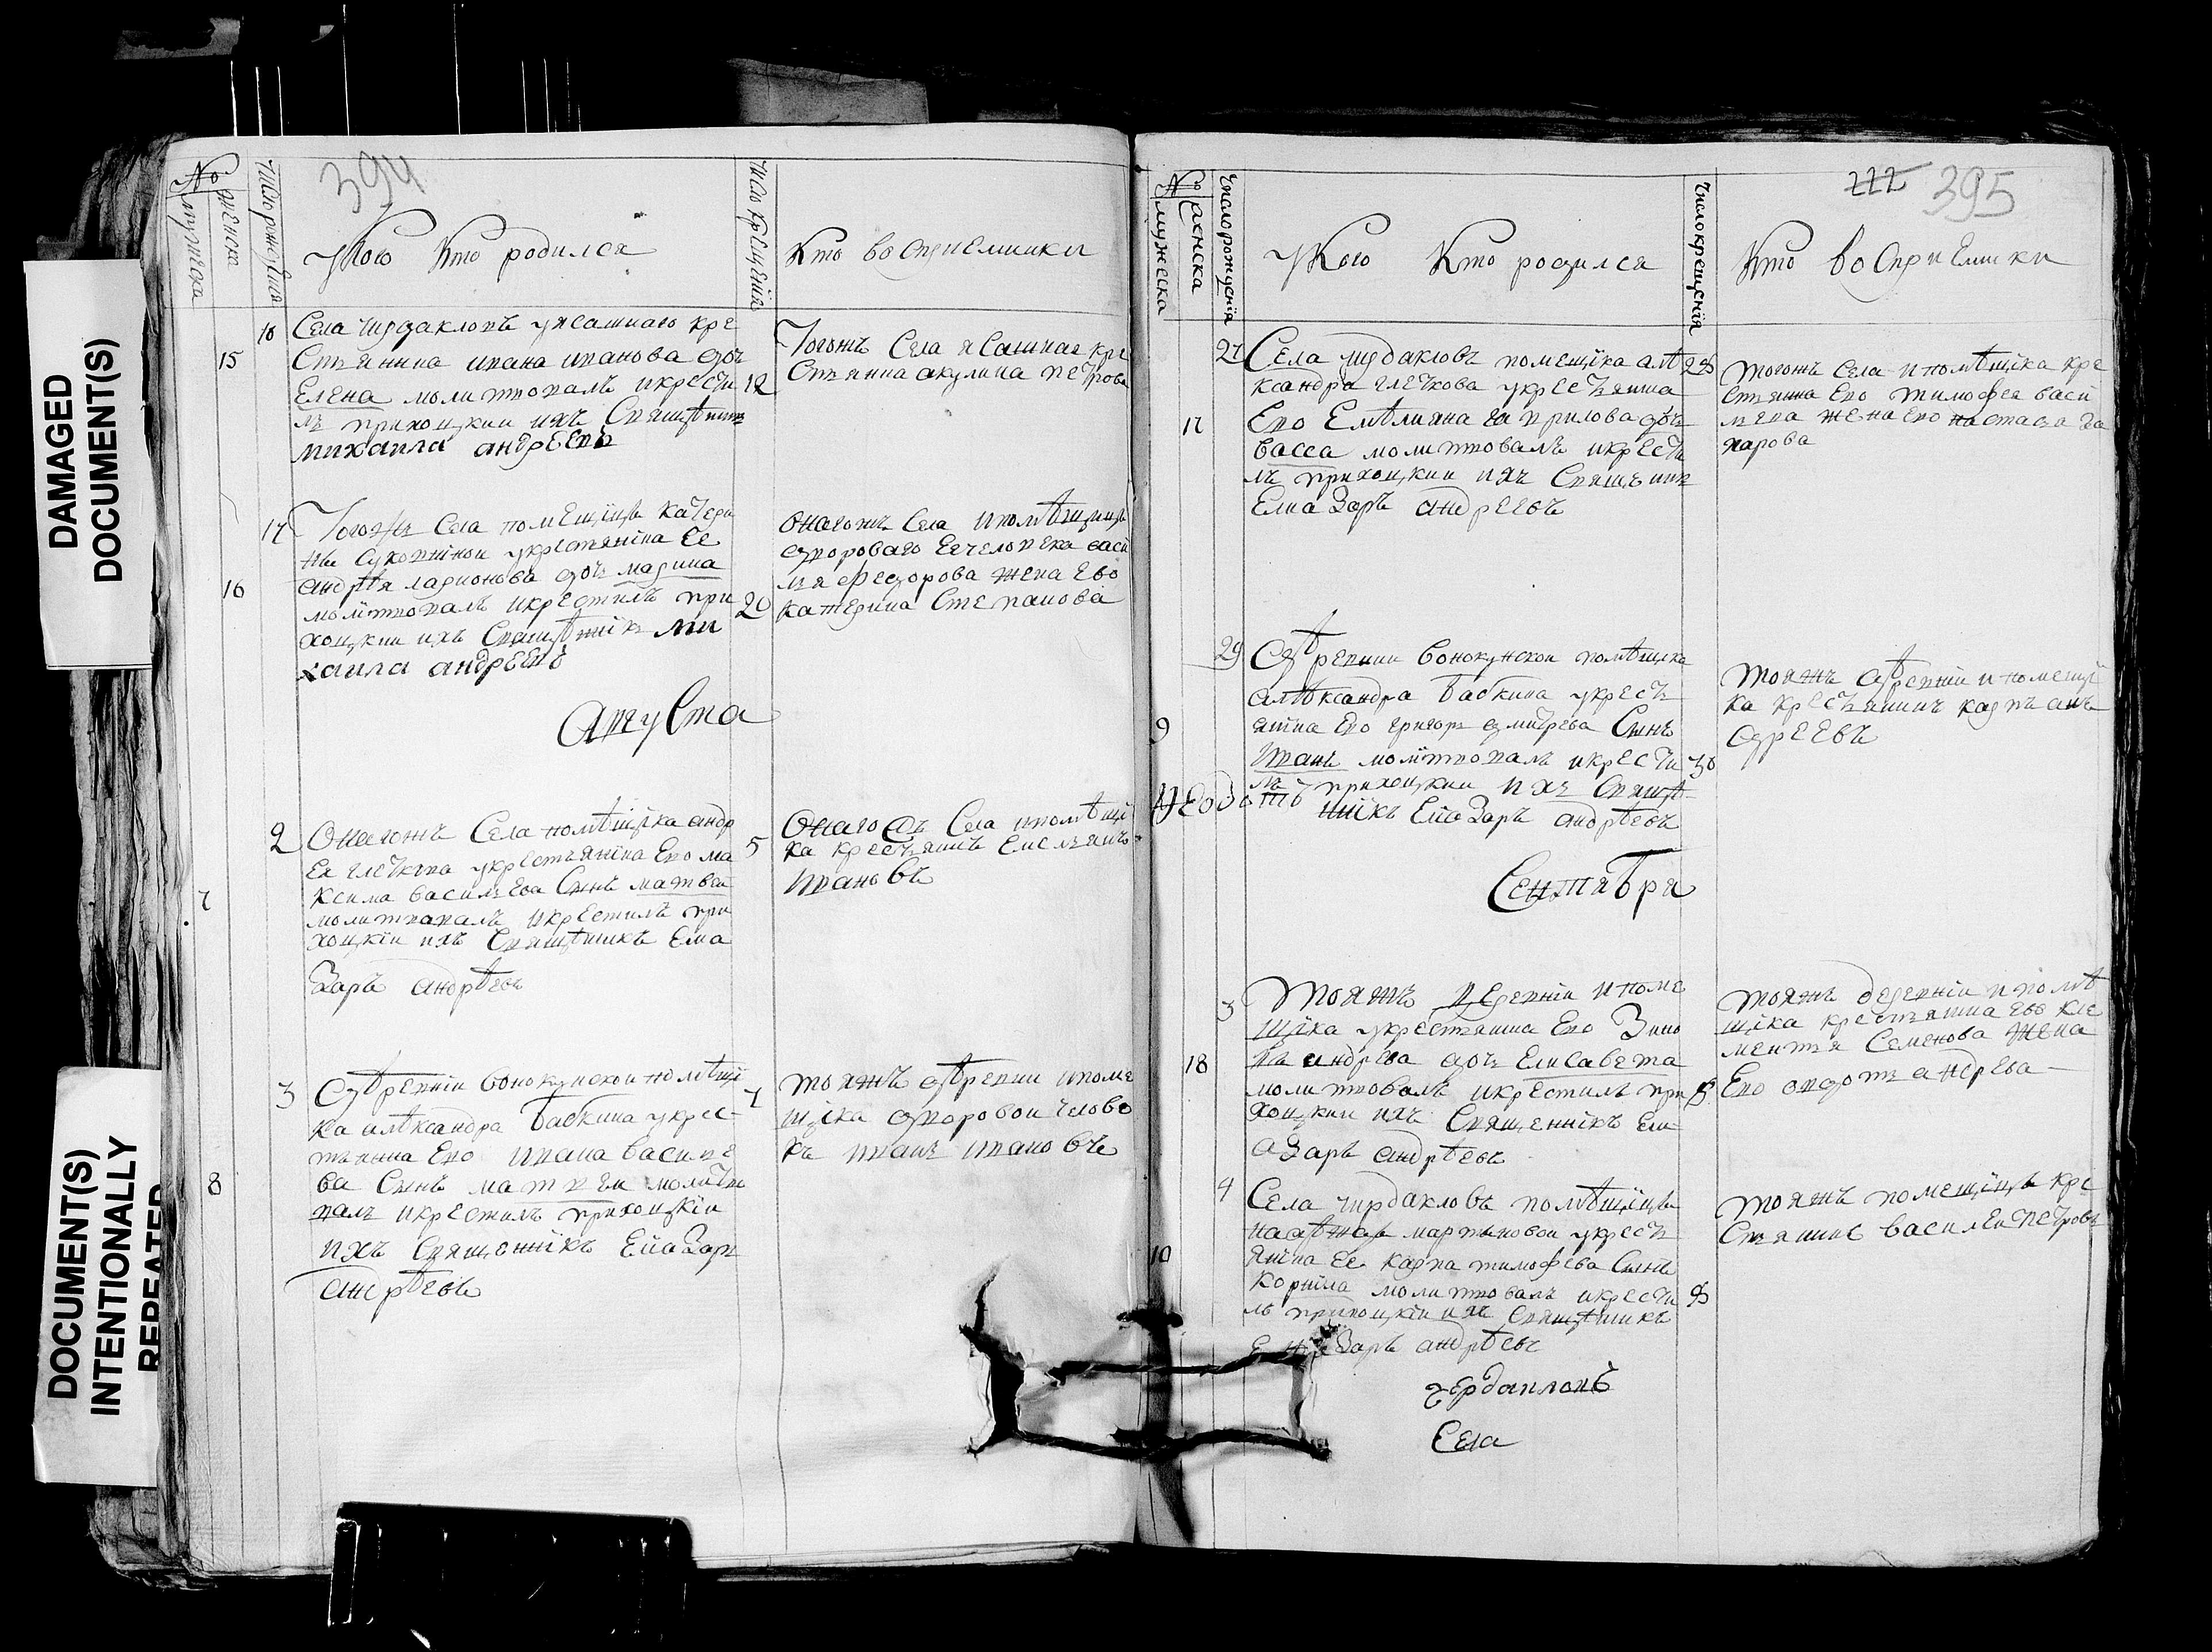 DAMAGED
DOCUMENT(S)
DOCUMENT(S)
INTENTIONALLY
REPEATED
394
№
мужска
женска
число рождения
У кого кто родился
число крещения
Кто восприемники
10
15
Села чирдакловъ уясашнаго кре
стьянина ивана иванова дочь
Елена молитвовалъ икрести
12
лъ приходцкии ихъ Священникъ
михаила андреевъ
Тогожъ Села ясашная кре
стьянка акулина петрова
17
16
Тогожъ Села помещицы катери
ны укрестьянина Ее
андрѣя ларионова дочь марина
молитвовалъ икрестилъ при
20
хоцкии ихъ Священникъ ми
хаила андреевъ
Оногожъ Села ипомѣщицы
двороваго Еечеловека васи
лья федорова жена Ево
катерина Степанова
Августа
2
7
Оногожъ Села помѣщика андр
Ея глечкова укрестьянина Ево ма
ксима васильева Сынъ матвей
молитвовалъ икрестилъ при
хоцкии ихъ Священникъ Елиа
Заръ андрѣевъ
5
Оного жъ Села ипомѣщи
ка крестьянинъ Емельянъ
Ивановъ
3
8
Сдѣревни вонокунской помѣщи
ка алѣксандра бабкина укрес
тьянина Ево ивана василье
ва Сынъ матвеи молитво
валъ икрестилъ приходцкии
ихъ Священникъ Елиазаръ
андрѣевъ
тояжъ дѣревни ипоме
щика дворовои челове
къ иванъ ивановъ
395
№
мужеска
женска
число рождения
У кого Кто родился
число крещения
Кто восприемники
27
17
Села чирдакловъ помещика алѣ
28
ксандра глечкова укресьянина
Ево Емѣлиана гаврилова дочь
васса молитвовалъ икрести
лъ приходцкии ихъ Священникъ
Елиазаръ андреевъ
тогожъ Села ипомѣщика кре
стьянина Ево тимофея васи
льева жена Ево настасья за
харова
29
9
Сдѣревни вонокунской помѣщика
алѣксандра бабкина укресть
янина Ево григорья дмитрева Сынъ
Иванъ молитвовалъ икрести
30
лъ приходцкии ихъ Священ
никъ Елиазаръ андрѣевъ
тояжъ дѣревни ипомещи
ка крестьянинъ карпъ ан
дреевъ
Сентября
3
18
Тояжъ деревни ипоме
щика укрестьянина Ево Зино
вья андрева дочь Елисавета
молитвовалъ икрестилъ при
хоцкии ихъ Священникъ Ели
аЗаръ андрѣевъ
тояжъ деревни ипомѣ
щика крестьянина Ево кле
ментья Семенова жена
Ево авдотья андрева
4
10
Села чирдакловъ помѣщицы
мартыновои укресть
янина Ее карпа тимофева Сынъ
Корнила молитвовалъ икрести
лъ приходцкии ихъ Священникъ
Заръ андрѣевъ
тояжъ помещицы кре
стьянинъ василеи петровъ
чердаплопъ
Села